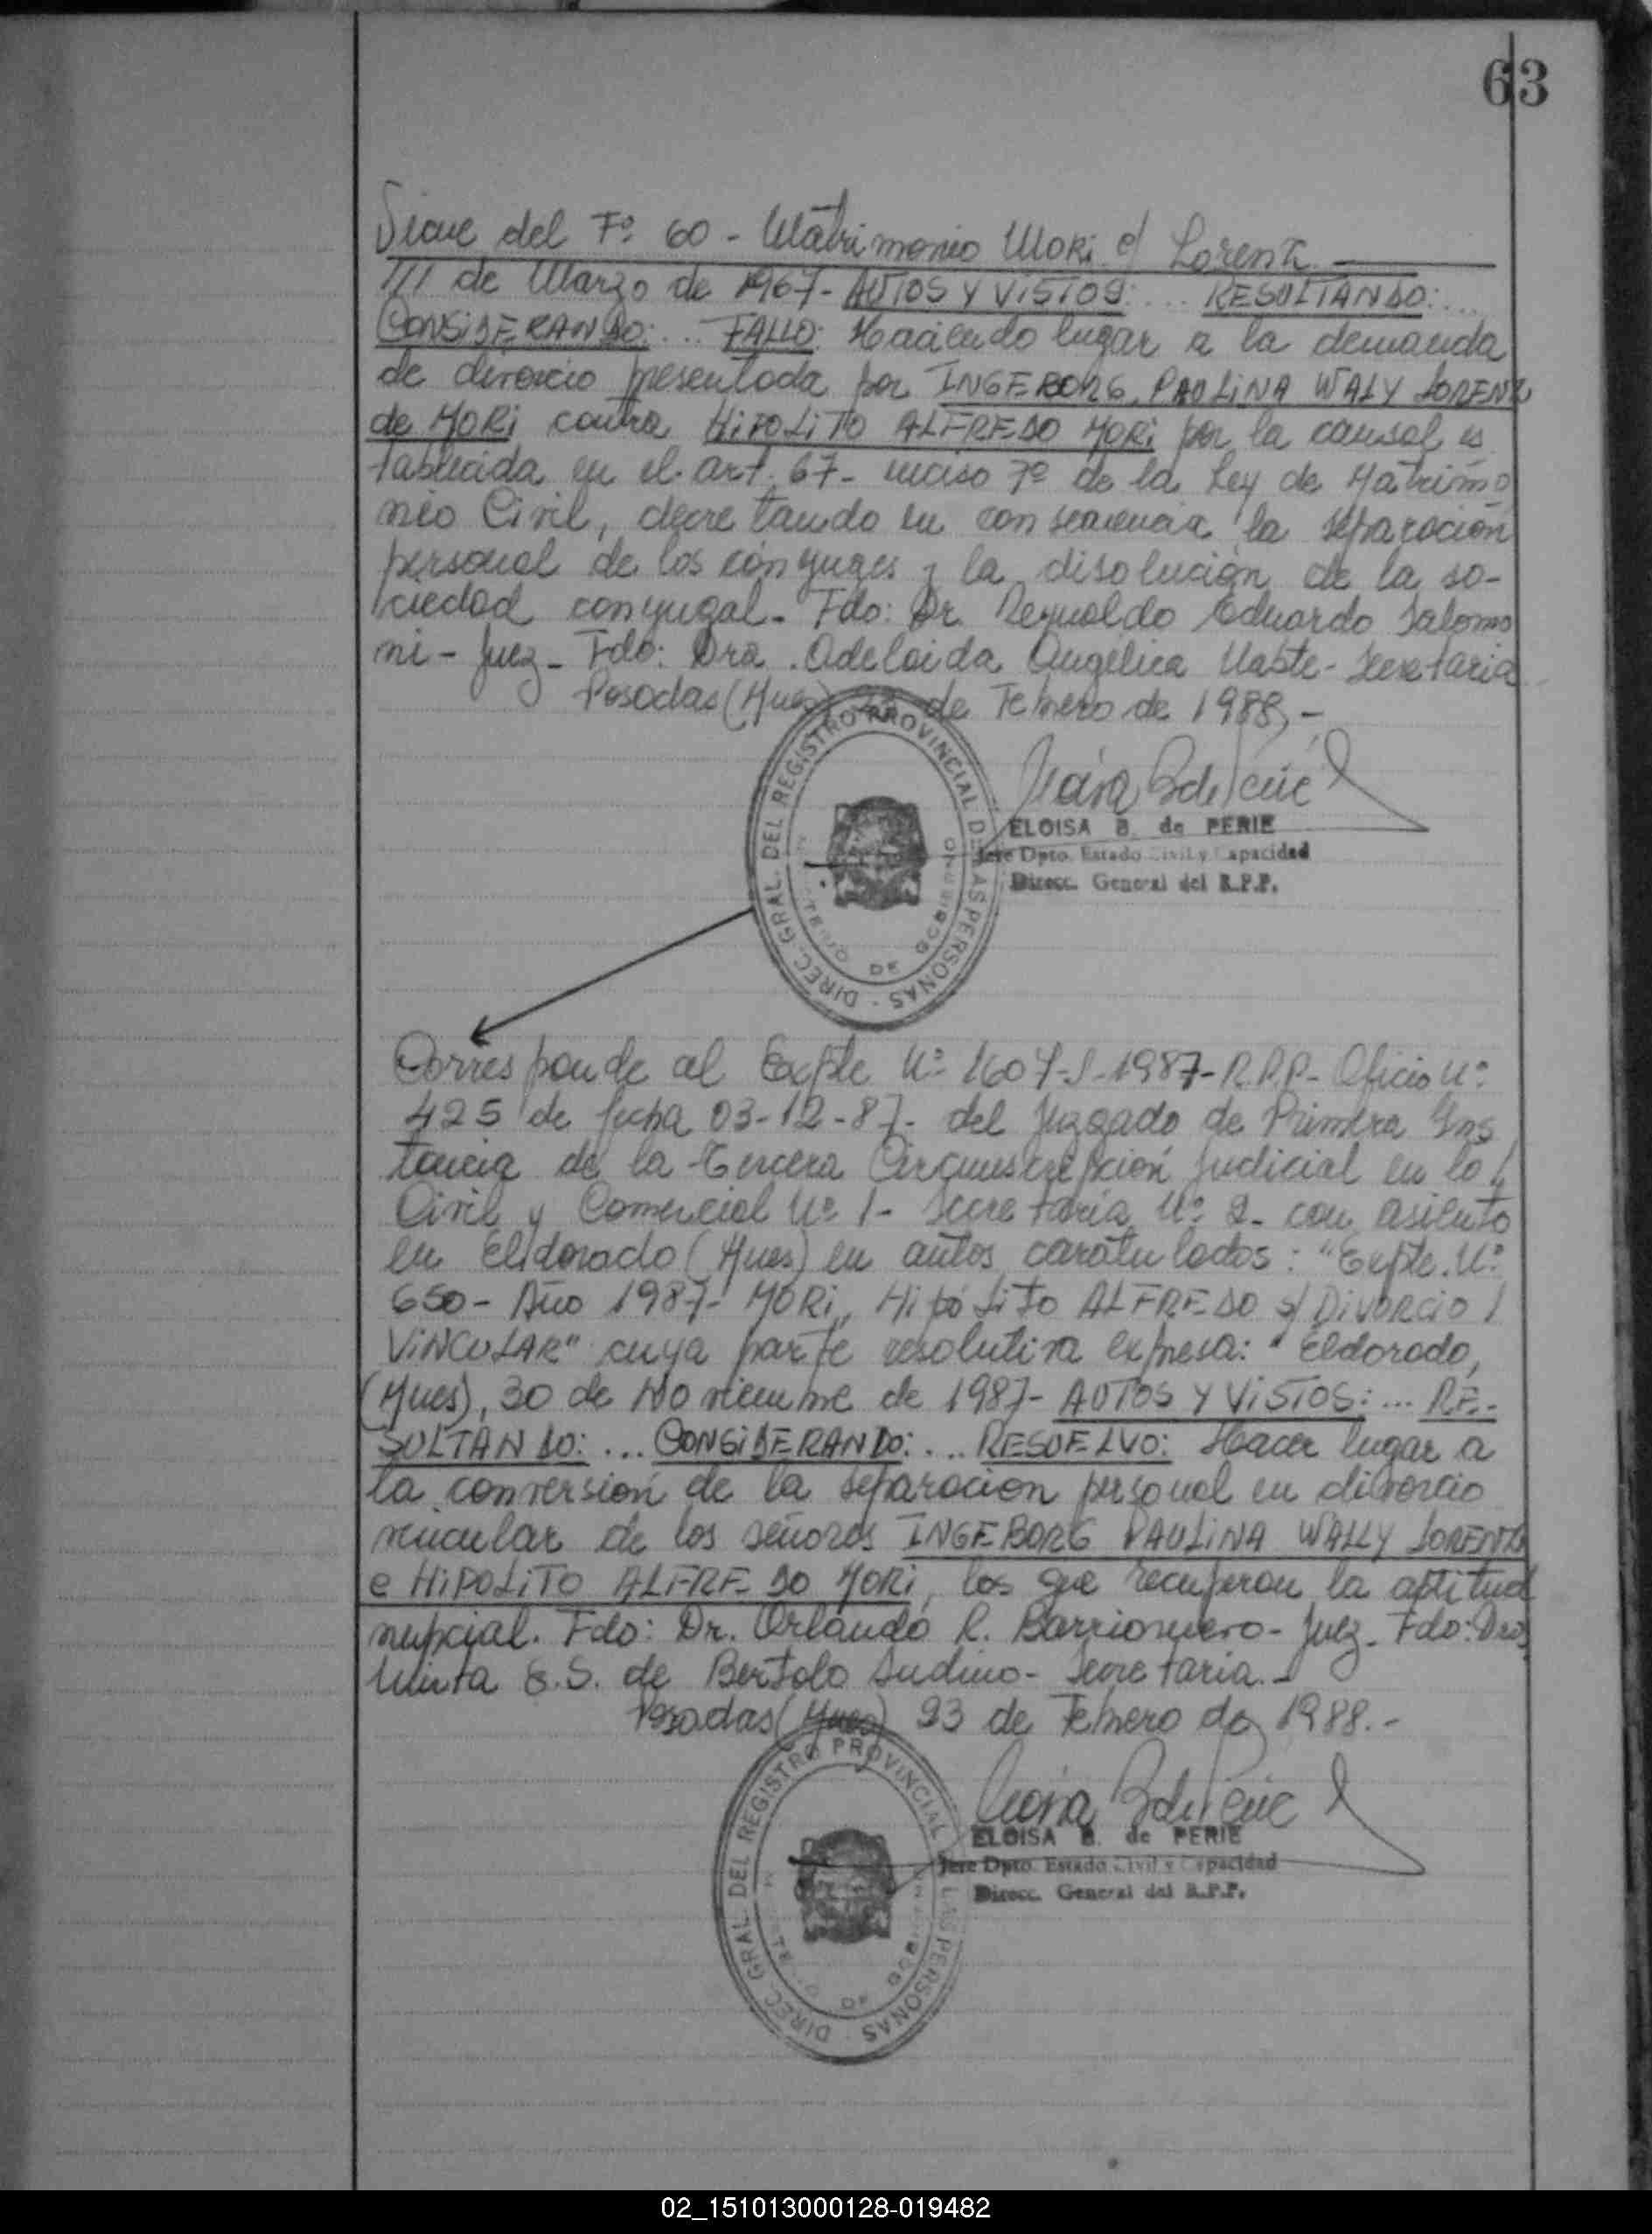 63
Sigue del Fº 60 - Matrimonio Mori c/ Lorenz
/// de Marzo de 1967- AUTOS Y VISTOS: ... RESULTANDO: ...
CONSIDERANDO: ... FALLO: Haciendo lugar a la demanda
de divorcio presentada por INGEBORG PAULINA WALY LORENZ
de MORI contra HIPOLITO ALFREDO MORI por la causal es
tablecida en el art. 67- inciso 7º de la Ley de Matrimo
nio Civil, decretando en consecuencia la separación
personal de los cónyuges y la disolución de la so-
ciedad conyugal. Fdo: Dr. Reynaldo Eduardo Salomo
ni - Juez - Fdo: Dra. Adelaida Angélica - Secretaria
Posadas (Mnes) de Febrero de 1988,-
DIREC. GRAL. DEL REGISTRO PROVINCIAL DE LAS PERSONAS
DE GOBIERNO
ELOISA B. de PERIE
Jefe Dpto. Estado Civil y Capacidad
Direcc. General del R.P.P.
Corresponde al Expte Nº 1607-J-1987-R.P.P- Oficio Nº
425 de fecha 03-12-87- del Juzgado de Primera Ins
tancia de la Tercera Circunscripción Judicial en lo
Civil y Comercial Nº 1- Secretaría Nº 2- con asiento
en Eldorado (Mnes) en autos caratulados: "Expte. Nº
650- Año 1987- MORI, Hipólito ALFREDO s/ DIVORCIO
VINCULAR" cuya parte resolutiva expresa: "Eldorado,
(Mnes), 30 de Noviembre de 1987- AUTOS Y VISTOS: ... RE-
SULTANDO: ... CONSIDERANDO: ... RESUELVO: Hacer lugar a
la conversión de la separación personal en divorcio
vincular de los señores INGEBORG PAULINA WALLY LORENZ
e HIPOLITO ALFREDO MORI, los que recuperan la aptitud
nupcial. Fdo: Dr. Orlando R. Barrionuevo - Juez. Fdo: Dra
Mirta S.S. de Bertolo Andino - Secretaria.-
Posadas (Mnes) 23 de Febrero de 1988.-
DIREC. GRAL. DEL REGISTRO PROVINCIAL LAS PERSONAS
ELOISA B. de PERIE
Jefe Dpto. Estado Civil y Capacidad
Direcc. General del R.P.P.
02_151013000128-019482